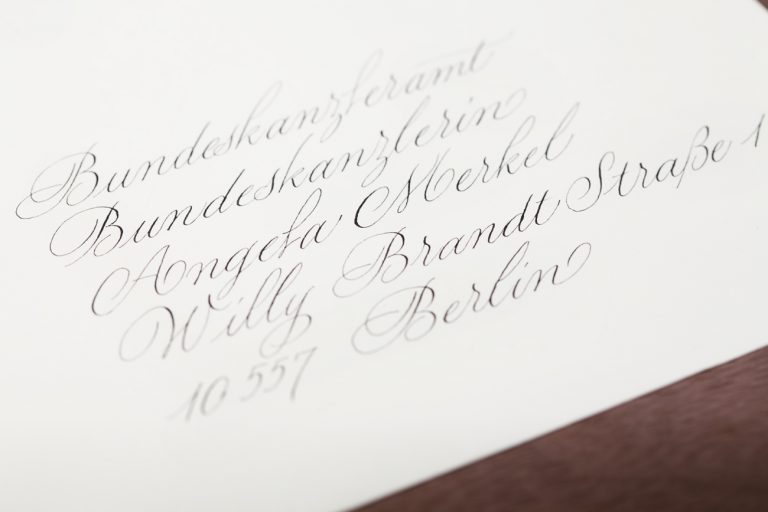 Bundeskanzleramt
Bundeskanzlerin
Angela Merkel
Willy Brandt Straße 1
10557 Berlin